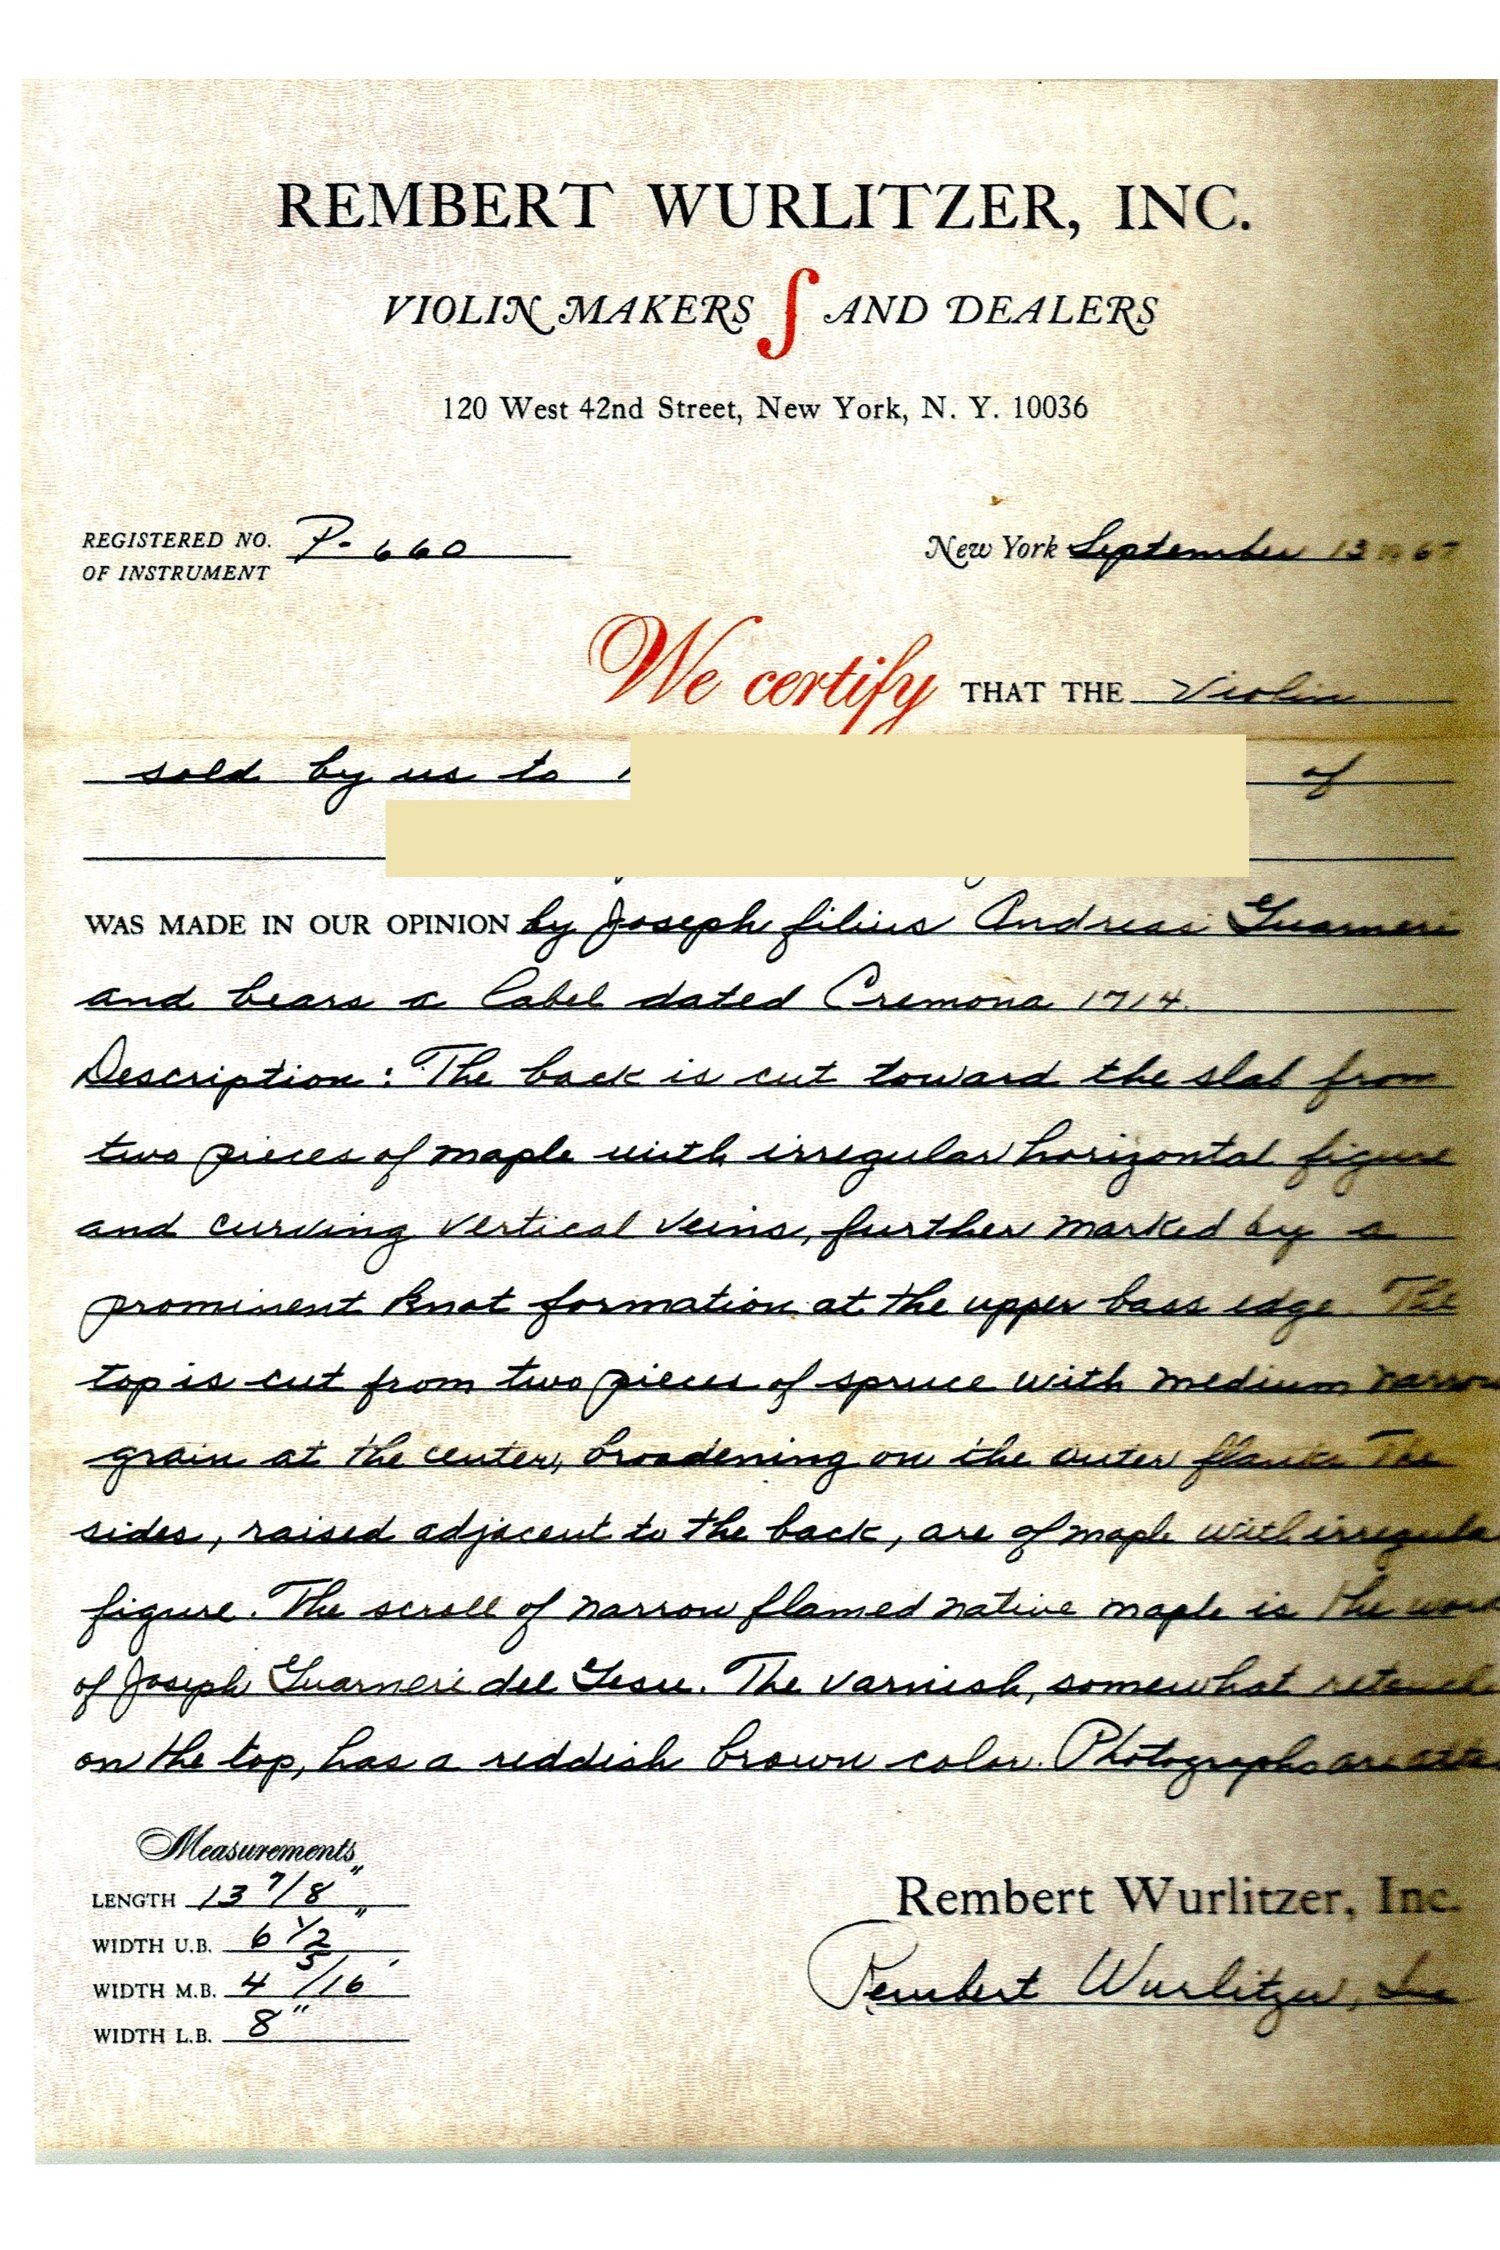 REMBERT WURLITZER, INC.
VIOLIN MAKERS AND DEALERS
120 West 42nd Street, New York, N. Y. 10036
REGISTERED NO. P-660 New York September 13 1967
OF INSTRUMENT
We certify THAT THE Violin
sold by us to of
WAS MADE IN OUR OPINION by Joseph filius Andreas Guarneri
and bears a label dated Cremona 1714.
Description: The back is cut toward the slab from
two pieces of maple with irregular horizontal figure
and curving vertical veins, further marked by a
prominent knot formation at the upper bass edge. The
top is cut from two pieces of spruce with medium narrow
grain at the center, broadening on the outer flanks. The
sides, raised adjacent to the back, are of maple with irregular
figure. The scroll of narrow flamed native maple is the work
of Joseph Guarneri del Gesu. The varnish, somewhat
on the top, has a reddish brown color. Photographs are
Measurements
LENGTH 13 7/8"
WIDTH U.B. 6 1/2"
WIDTH M.B. 4 5/16"
WIDTH L.B. 8"
Rembert Wurlitzer, Inc.
Rembert Wurlitzer, Inc